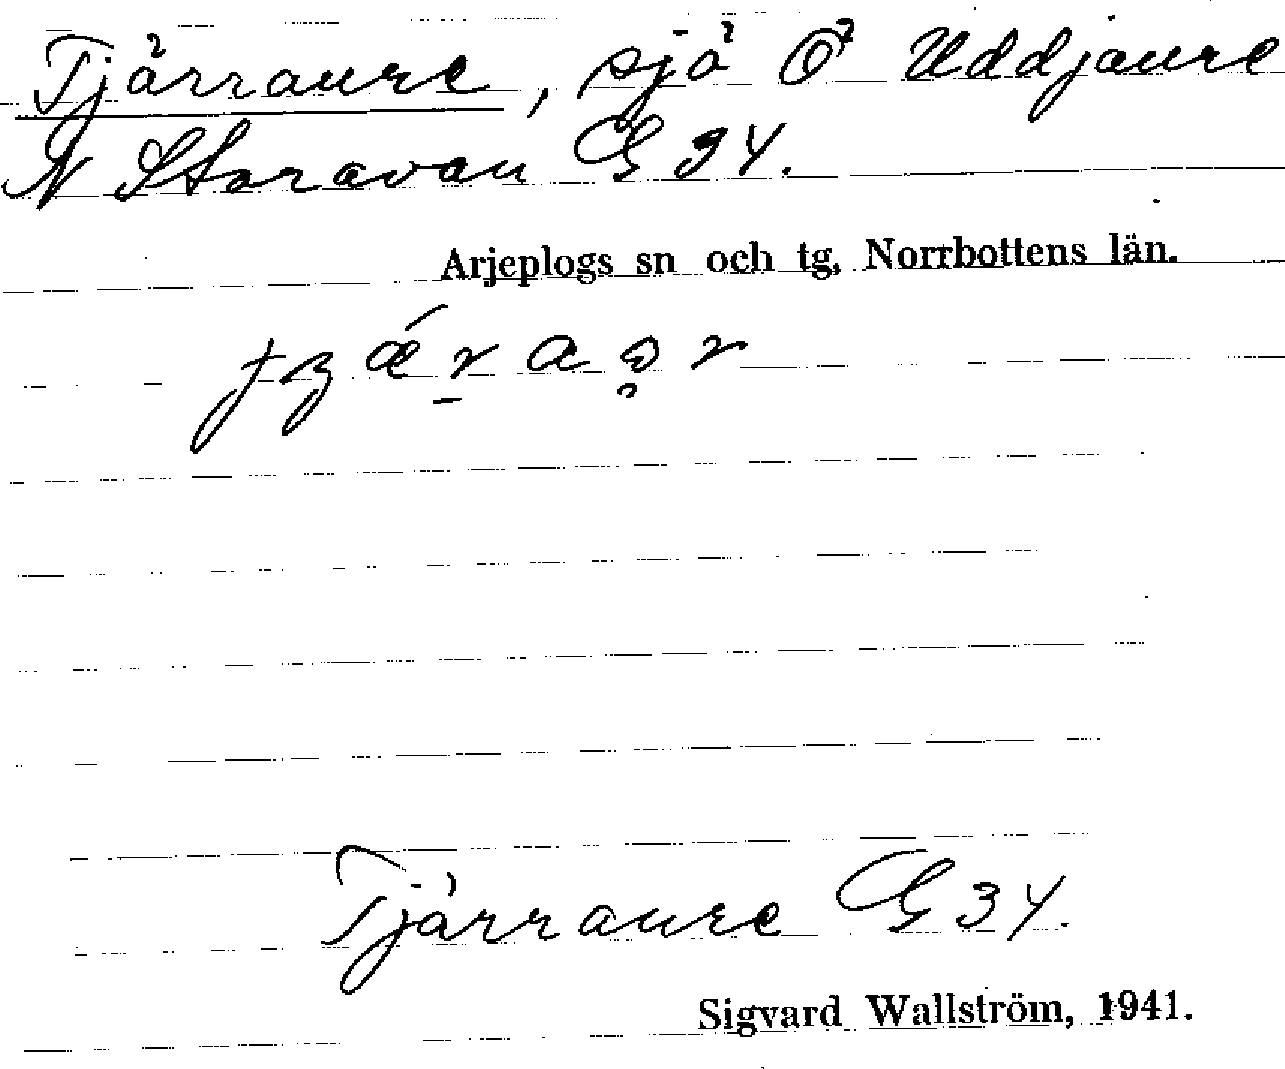 Tjärraure, sjö Ö Uddjaure
N Storavan G 34.
Arjeplogs sn och tg, Norrbottens län.
Tjärraure G 34.
Sigvard Wallström, 1941.